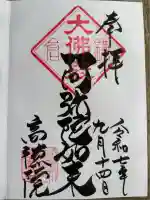 奉拝
令和七年
九月十四日
大佛
阿弥陀如来
高徳院